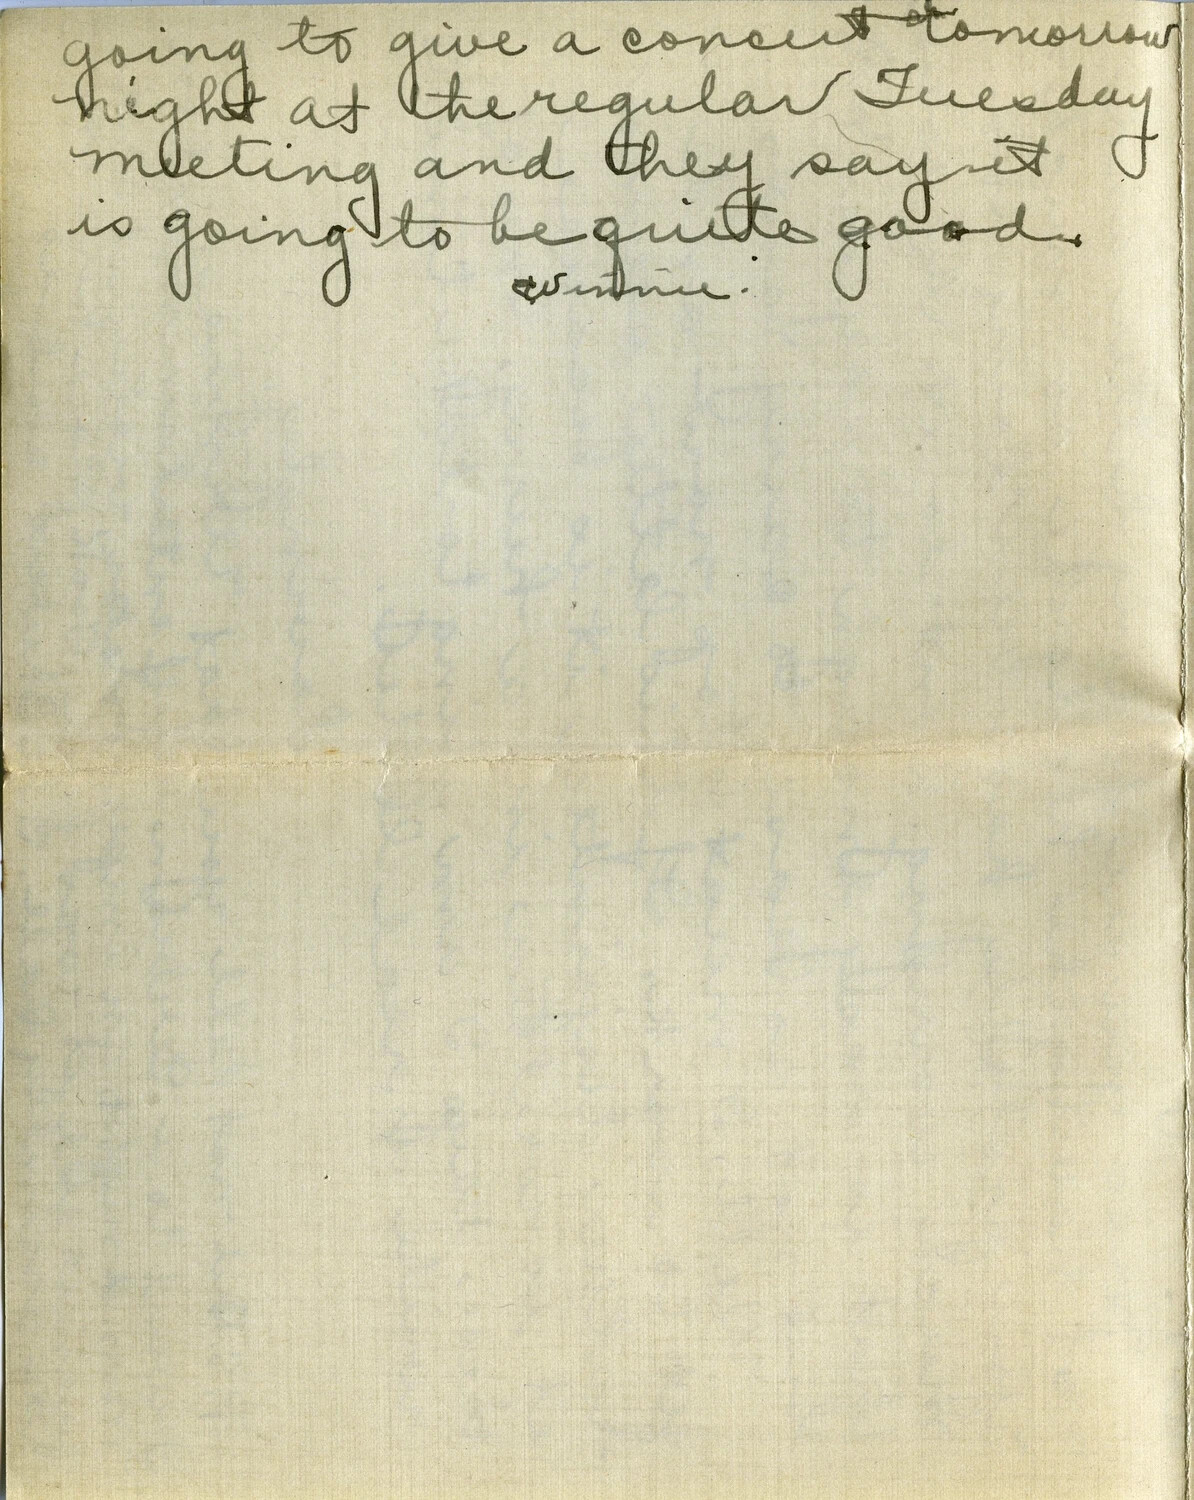 going to give a concert tomorrow
night at the regular Tuesday
meeting and they say it
is going to be quite good.
Winnie.